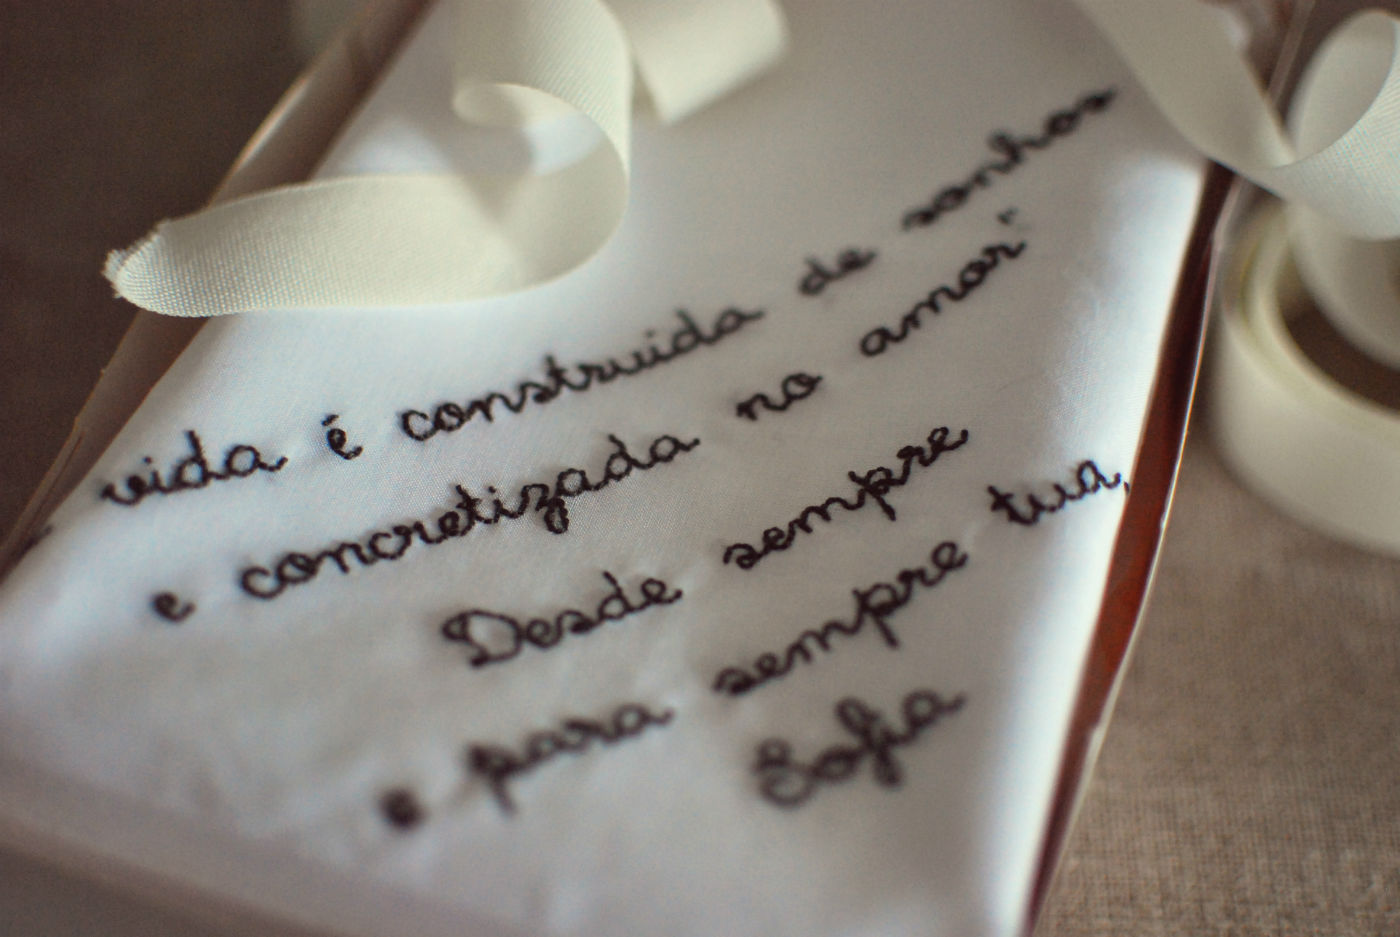 vida é construida de sonhos
e concretizada no amor"
Desde sempre
e para sempre tua,
Sofia